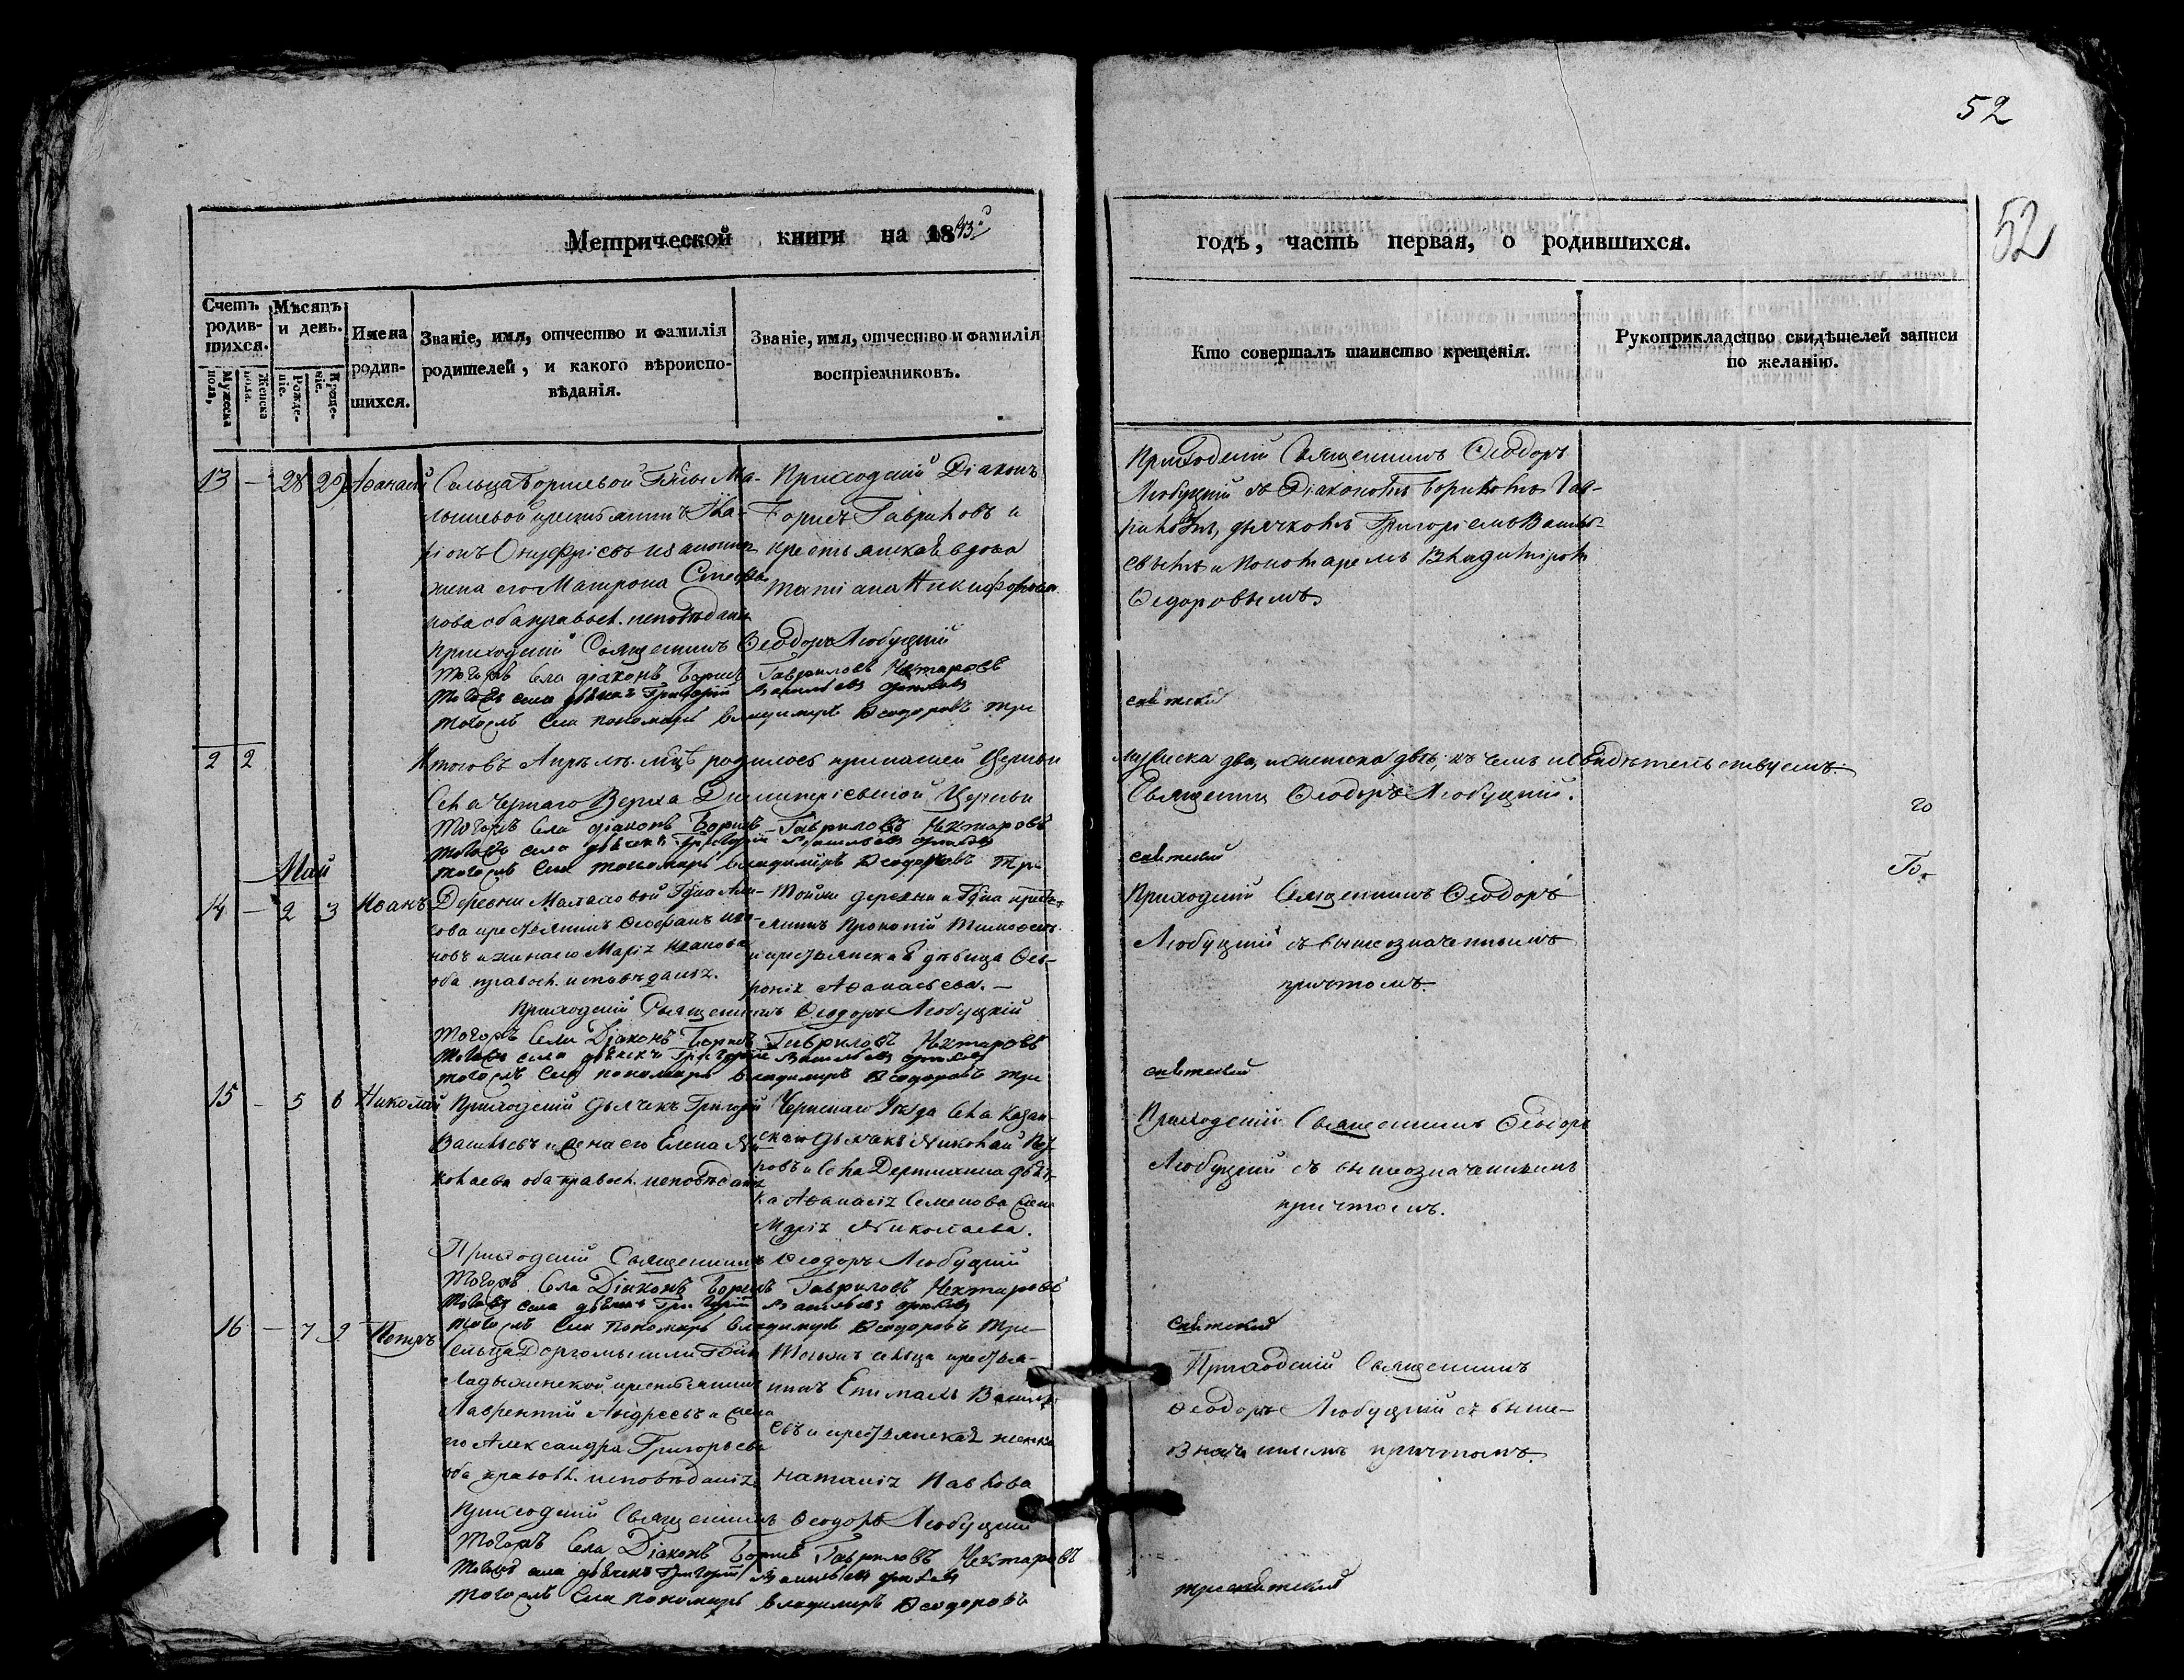 52
52
Метрической книги на 1843й
годъ, часть первая, о родившихся.
Счетъ родив-шихся.
Мужеска пола,
Женска пола.
Мѣсяцъ и день.
Рожде-ніе.
Креще-ніе.
Имена родив-шихся.
Званіе, имя, отчество и фамилія родителей, и какого вѣроиспо-вѣданія.
Званіе, имя, отчество и фамилія воспріемниковъ.
Кто совершалъ таинство крещенія.
Рукоприкладство свидѣтелей записи по желанію.
13 — 28 29 Аѳанасій
Сельца
жена его Матрона Стефа-
нова оба правосл. исповѣданія
Приходскій Діаконъ
Борисъ Гавриловъ и
крестьянская вдова
Татіана Никифорова.
Приходскій Священникъ Ѳеодоръ
Любуцкій съ Діакономъ Борисомъ Гав-
риловымъ, дьячкомъ Григоріемъ Василь-
евымъ и Пономаремъ Владиміромъ
Ѳедоровымъ.
Приходскій Священникъ Ѳеодоръ Любуцкій
Тогожъ Села діаконъ Борисъ Гавриловъ Нектаровъ
Тогожъ села дьячекъ Григорій Васильевъ
Тогожъ Села пономарь Владимиръ Ѳеодоровъ Три
свѣтскій
2 2
Итого въ Апрѣлѣ м-цѣ родилось при нашей Церкви
мужеска два, и женска двѣ, въ чемъ и свидѣтельствуемъ.
Села Чернаго Верха Димитріевской Церкви
Священникъ Ѳеодоръ Любуцкій.
Тогожъ Села діаконъ Борисъ Гавриловъ Нектаровъ
Тогожъ села дьячекъ Григорій Васильевъ
Тогожъ Села пономарь Владимиръ Ѳеодоровъ Три
свѣтскій
Май
14 — 2 3 Иванъ
Деревни
крестьянинъ Ѳеофанъ Ива-
новъ и жена его Марія Иванова
оба правосл. исповѣданія.
Тойже деревни
Прокопій Тимоѳеевъ
и крестьянская дѣвица Фев-
ронія Аѳанасьева.—
Приходскій Священникъ Ѳеодоръ
Любуцкій съ вышеозначеннымъ
причтомъ.
Приходскій Священникъ Ѳеодоръ Любуцкій
Тогожъ Села Діаконъ Борисъ Гавриловъ Нектаровъ
Тогожъ села дьячекъ Григорій Васильевъ
Тогожъ Села пономарь Владимиръ Ѳеодоровъ Три
свѣтскій
15 — 5 6 Николай
Приходскій дьячекъ Григорій
Васильевъ и жена его Елена Ни-
колаева оба правосл. исповѣданія
Уѣзда Села Казан-
скаго дьячекъ Николай Пет-
ровъ и Села
Аѳанасія Семенова жена
Марія Николаева.
Приходскій Священникъ Ѳеодоръ
Любуцкій съ вышеозначеннымъ
причтомъ.
Приходскій Священникъ Ѳеодоръ Любуцкій
Тогожъ Села Діаконъ Борисъ Гавриловъ Нектаровъ
Тогожъ села дьячекъ Григорій Васильевъ
Тогожъ Села пономарь Владимиръ Ѳеодоровъ Три—
свѣтскій
16 — 7 9 Петръ
Сельца Доргомышли Г-жи
Ладыженской крестьянинъ
Лаврентій Андреевъ и жена
его Александра Григорьева
оба правосл. исповѣданія
Тогожъ сельца крестья-
нинъ Епимахъ Василь-
евъ и крестьянская женка
Наталія Павлова
Приходскій Священникъ
Ѳеодоръ Любуцкій съ выше-
значеннымъ причтомъ.
Приходскій Священникъ Ѳеодоръ Любуцкій
Тогожъ Села Діаконъ Борисъ Гавриловъ Нектаровъ
Тогожъ села дьячекъ Григорій Васильевъ
Тогожъ Села пономарь Владимиръ Ѳеодоровъ
трисвѣтскій